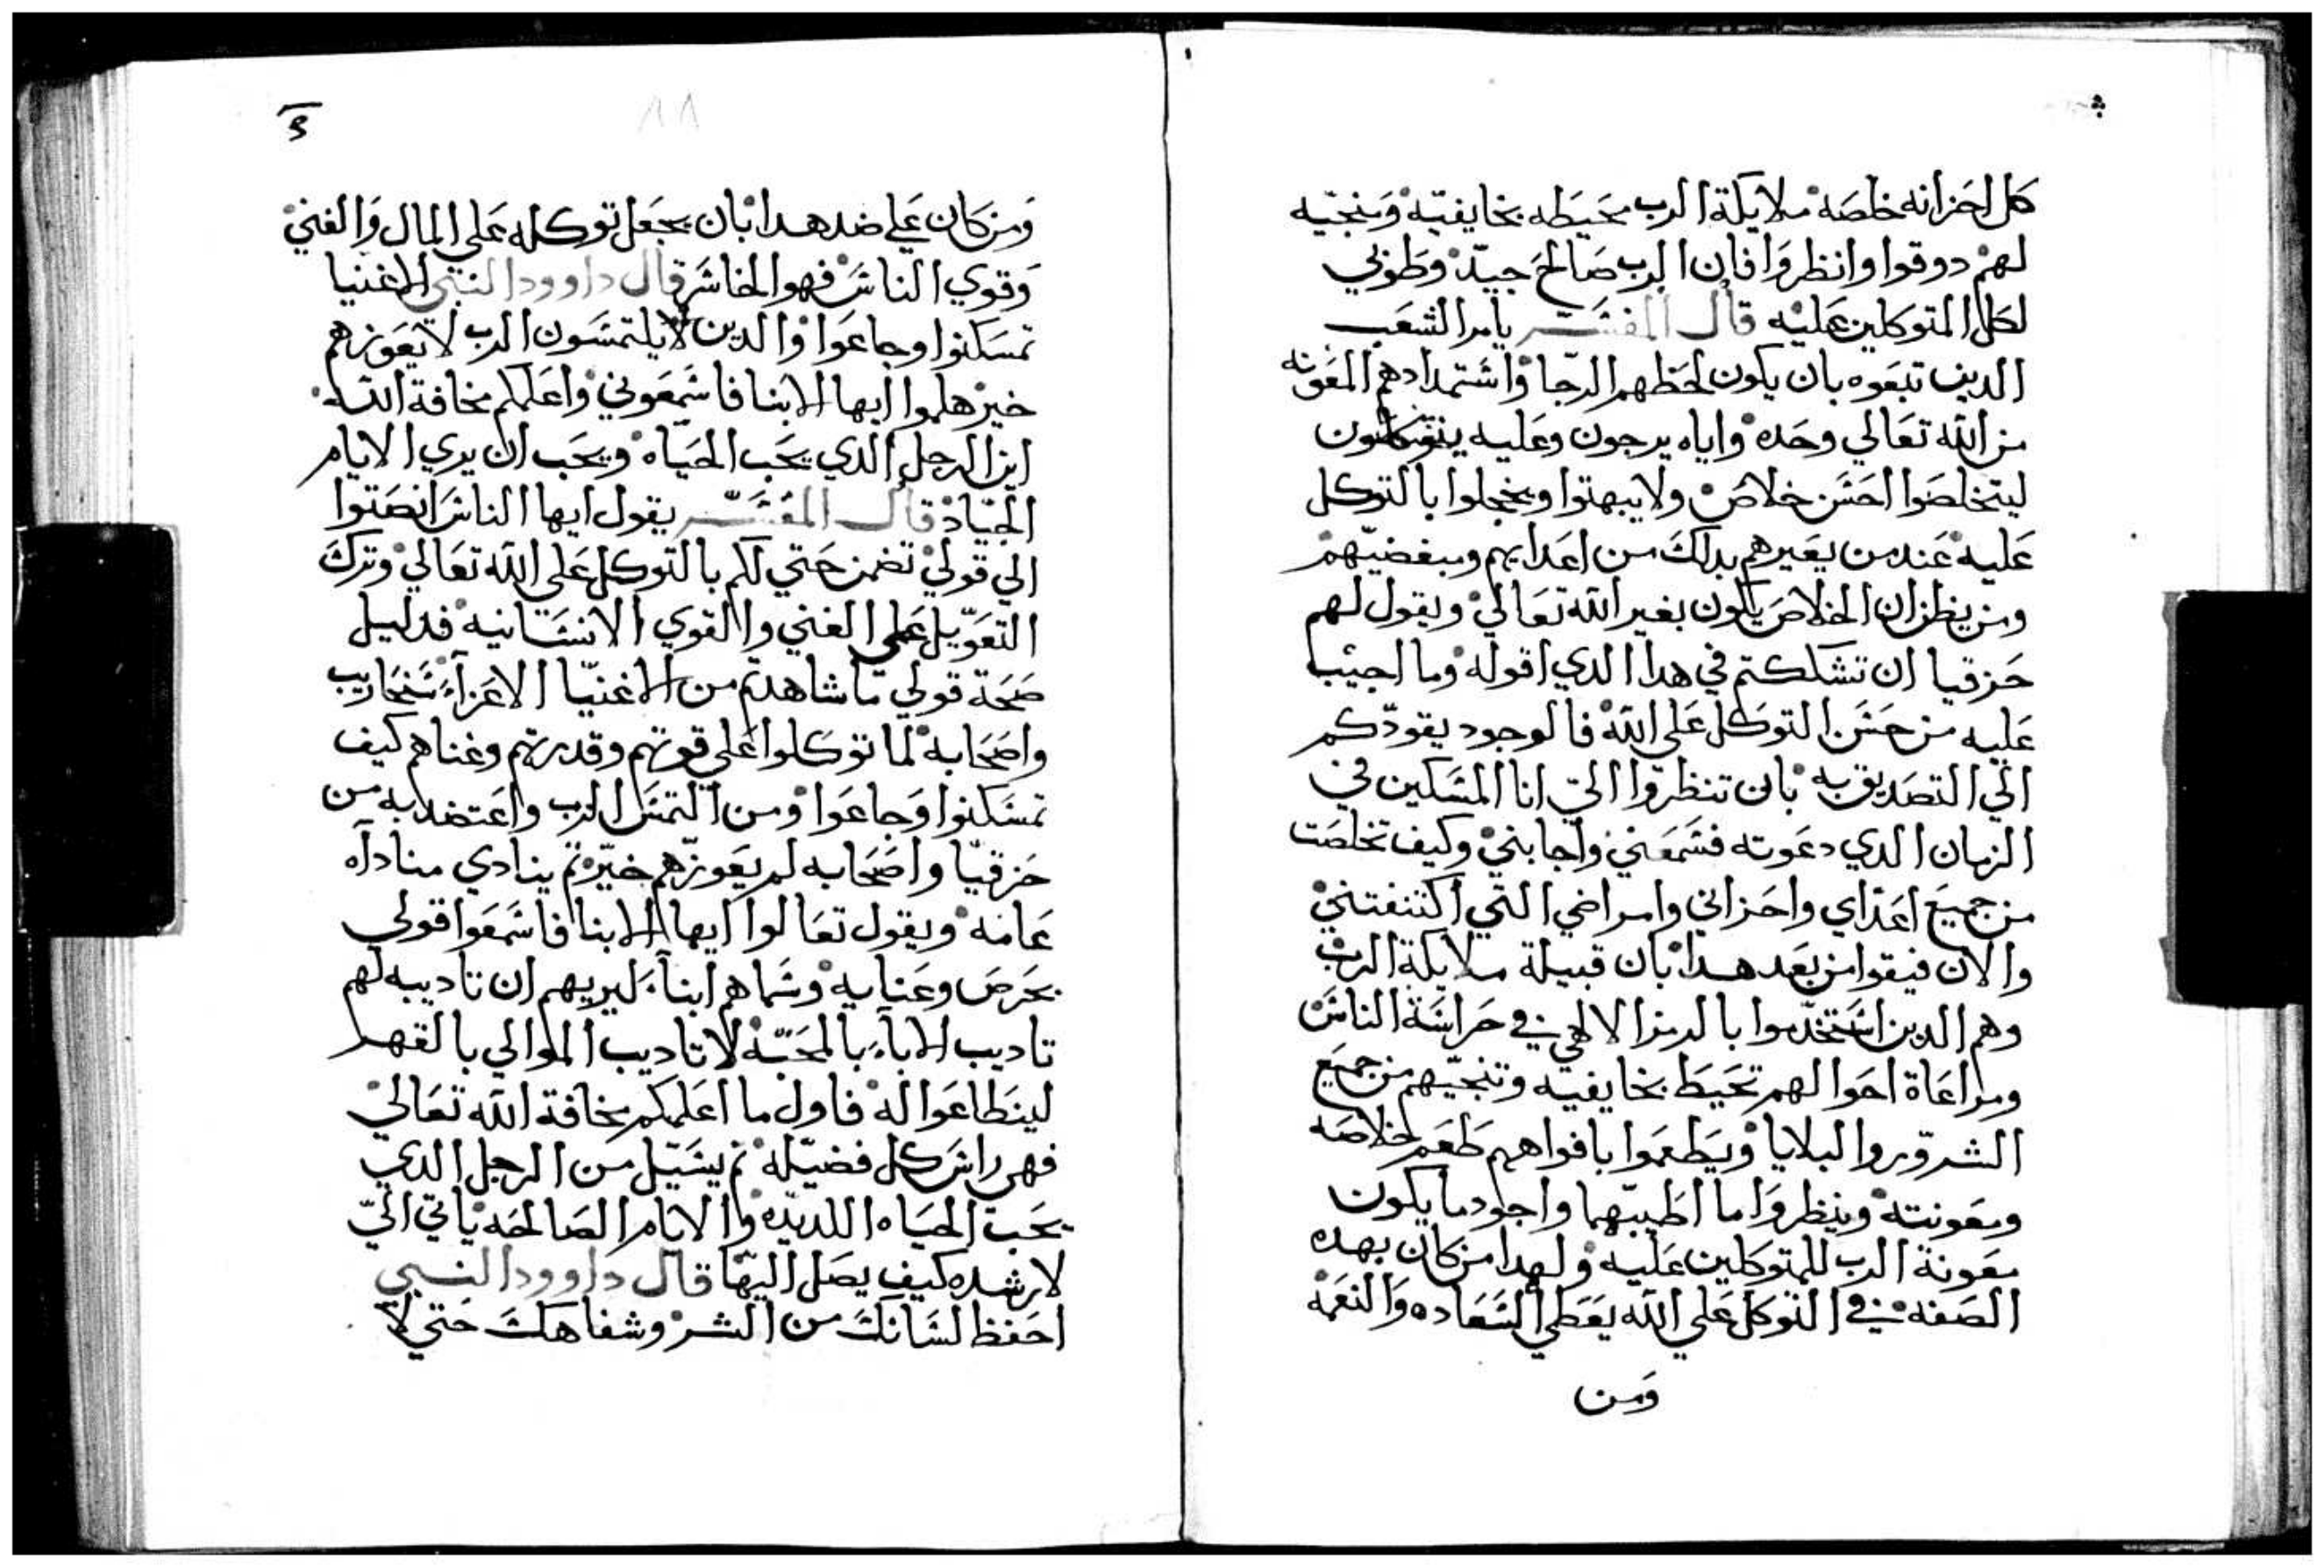 كل احزانه خلصه ملايكة الرب محيطه بخايفيه وينجيه
لهم دوقوا وانظروا فان الرب صالح جيد وطوبي
لكل المتوكلين عليه قال المفسر يامر الشعب
الدين تبعوه بان يكون لحظهم الرجا واستمدادهم المعونه
من الله تعالي وحده واياه يرجون وعليه يتوكلون
ليتخلصوا احسن خلاص ولا يبهتوا ويخجلوا بالتوكل
عليه عند من يعيرهم بدالك من اعدايهم ومبغضيهم
ومن يظن ان الخلاص يكون بغير الله تعالي ويقول لهم
حزقيا ان تشككتم في هدا الدي اقوله وما اجيب
عليه من حسن التوكل علي الله فالوجود يقودكم
الي التصديق به بان تنظروا الي انا المسكين في
الزمان الدي دعوته فسمعني واجابني وكيف تخلصت
من جميع اعداي واحزاني وامراضي التي اكتنفتني
والان فيقوا من بعد هدا بان قبيلة ملايكة الرب
وهم الدين استخدموا بالرمز الالاهي في حراسة الناس
ومراعاة احوالهم تحيط بخايفيه وتنجيهم من جميع
الشرور والبلايا ويطعموا بافواههم طعم خلاصه
ومعونته وينظروا ما اطيبهما واجود ما يكون
معونة الرب للمتوكلين عليه ولهدا من كان بهده
الصفه في التوكل علي الله يعطي السعاده والنعمه
ومن
ومن كان علي ضد هدا بان يجعل توكله علي المال والغني
وقوي الناس فهو الخاسر قال داوود النبي الاغنيا
تمسكنوا وجاعوا والدين لا يلتمسون الرب لا يعوزهم
خير هلموا ايها الابنا فاسمعوني واعلمكم مخافة الله
اين الرجل الدي يحب الحياه ويحب ان يري الايام
الجياد قال المفسر يقول ايها الناس انصتوا
الي قولي تضمن حتي لكم بالتوكل علي الله تعالي وترك
التعويل علي الغني والقوي الانسانيه فدليل
صحة قولي ما شاهدتم من الاغنيا الاعزاء سنحاريب
واصحابه لما توكلوا علي قوتهم وقدرتهم وغناهم كيف
تمسكنوا وجاعوا ومن التمس الرب واعتضد به من
حزقيا واصحابه لم يعوزهم خير تم ينادي مناداه
عامه ويقول تعالوا ايها الابنا فاسمعوا قولي
بحرص وعنايه وسماهم ابناء ليريهم ان تاديبه لهم
تاديب الاباء بالمحبه لا تاديب الموالي بالقهر
لينطاعوا له فاول ما اعلمكم مخافة الله تعالي
فهي راس كل فضيله تم يسيل من الرجل الدي
يحب الحياه اللديده والايام الصالحه ياتي الي
لارشده كيف يصل اليها قال داوود النبي
احفظ لسانك من الشر وشفاهك حتي لا